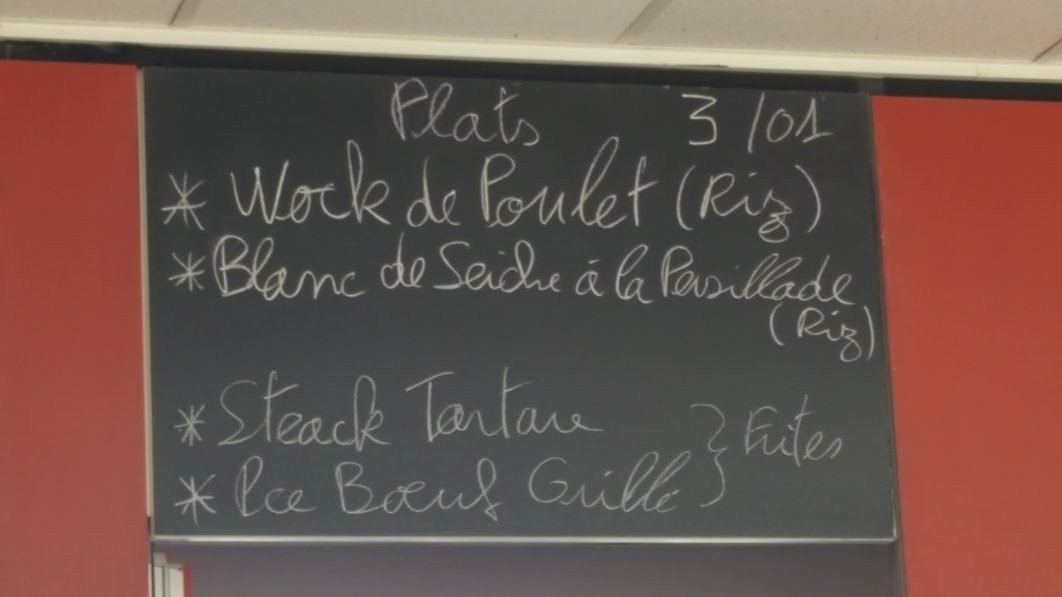 Plats 3/01
* Wock de Poulet (Riz)
* Blanc de Seiche à la Persillade
(Riz)
* Steack Tartare
} Frites
* Pce Bœuf Grillé